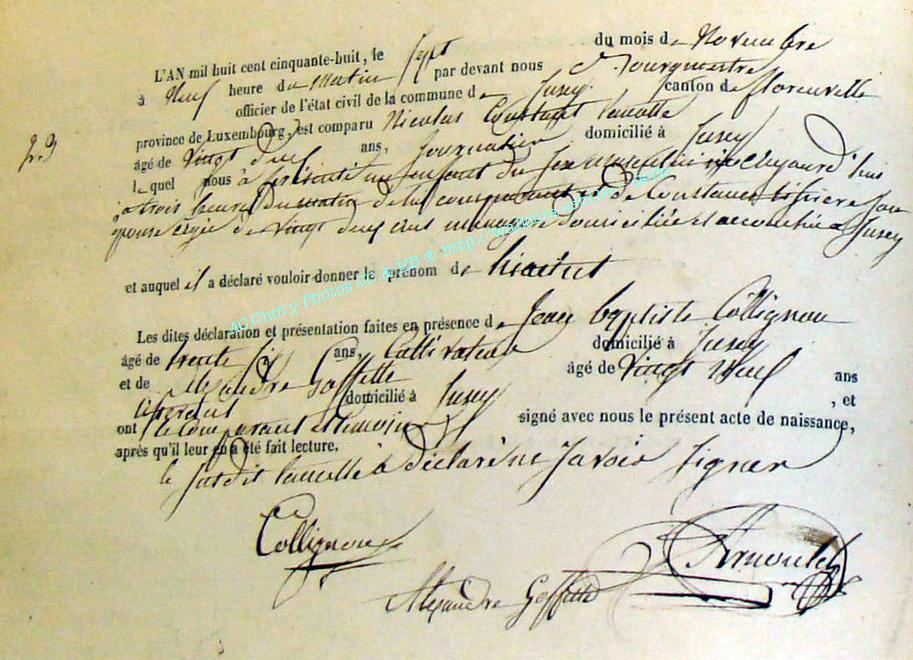 L'AN mil huit cent cinquante-huit, le sept du mois de Novembre
à neuf heure du matin par devant nous Bourgmestre
officier de l'état civil de la commune de Jusey canton de florenville
province de Luxembourg, est comparu Nicolas Constant
23
âgé de vingt neuf ans, Journalier domicilié à Jusey
lequel nous à présenté un enfant du sexe masculin né aujourd'hui
à trois heure du matin de lui comparant et de Constance
épouse agée de vingt neuf ans menagere domiciliée et accouchée a Jusey
et auquel il a déclaré vouloir donner le prénom de
Les dites déclaration et présentation faites en présence de Jean baptiste Collignon
âgé de trente six ans, Cultivateur domicilié à Jusey
et de Alexandre Goffette âgé de vingt neuf ans
domicilié à Jusey , et
ont le comparant signé avec nous le présent acte de naissance,
après qu'il leur en a été fait lecture.
le susdit à déclaré ne savoir signer
Collignon
Arnould
Alexandre Goffette
AC Chiny Photos JC & RB ® http://